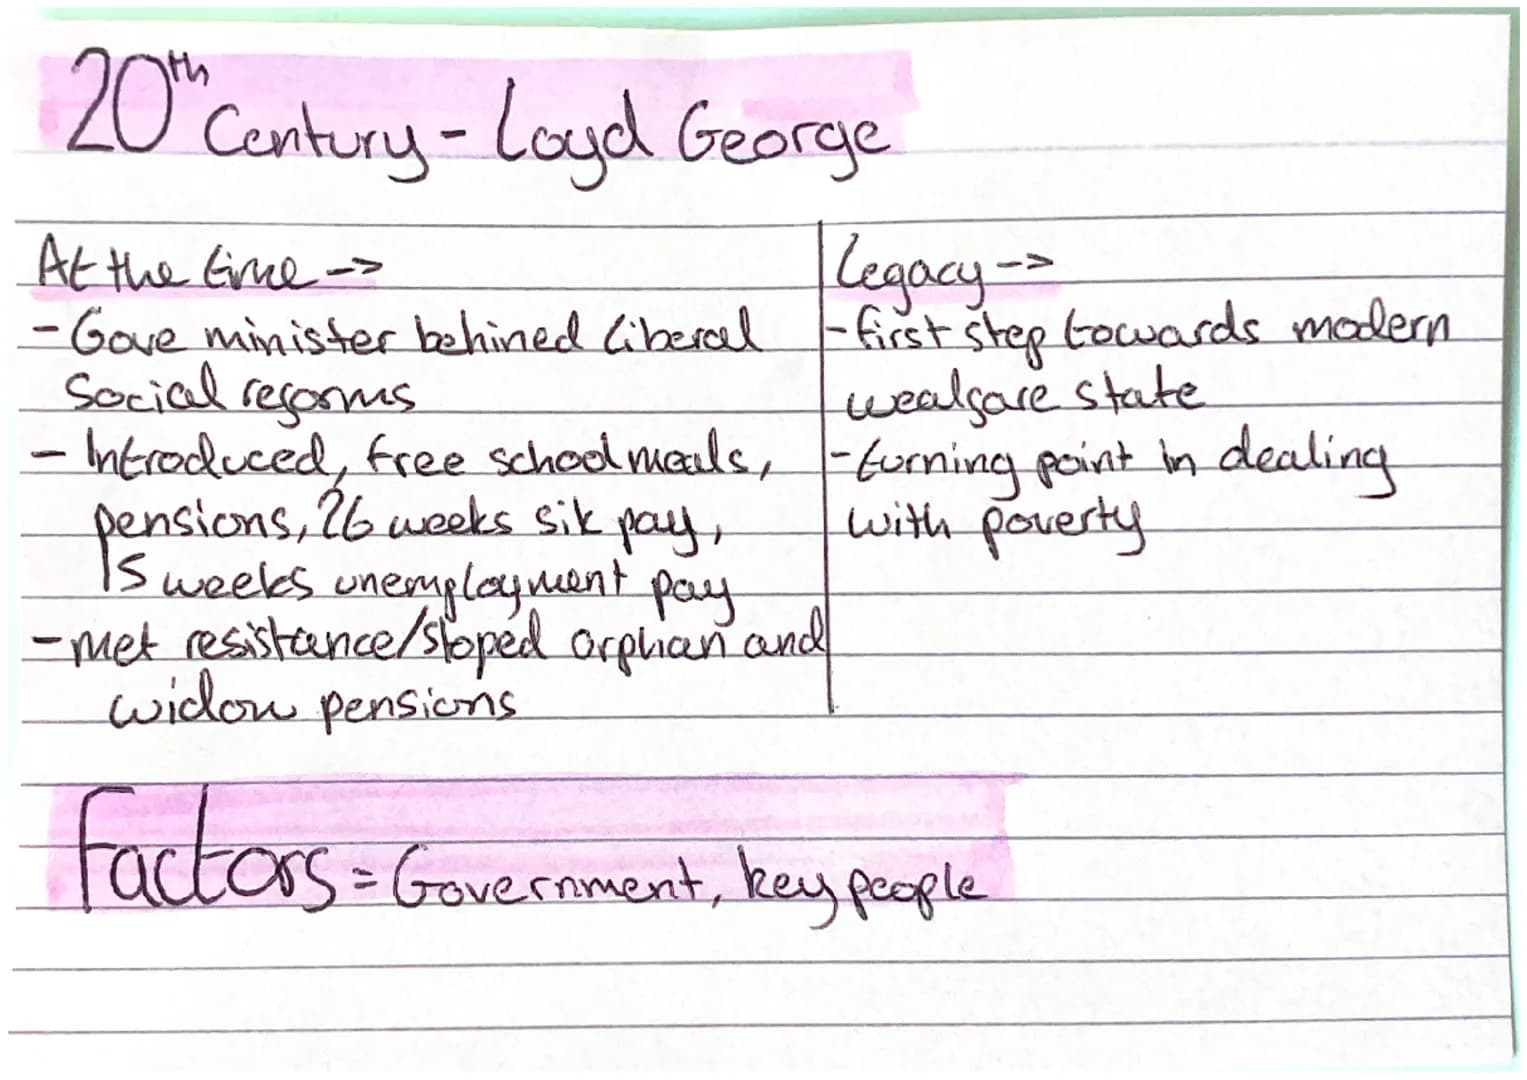 20th Century - Loyd George
At the time -->
- Gove minister behined liberal
social reforms
- Introduced, free school meals,
pensions, 26 weeks sik pay,
15 weeks unemployment pay
- met resistance/stoped orphan and
widow pensions
Legacy -->
- first step towards modern
wealfare state
- turning point in dealing
with poverty
Factors = Government, key people